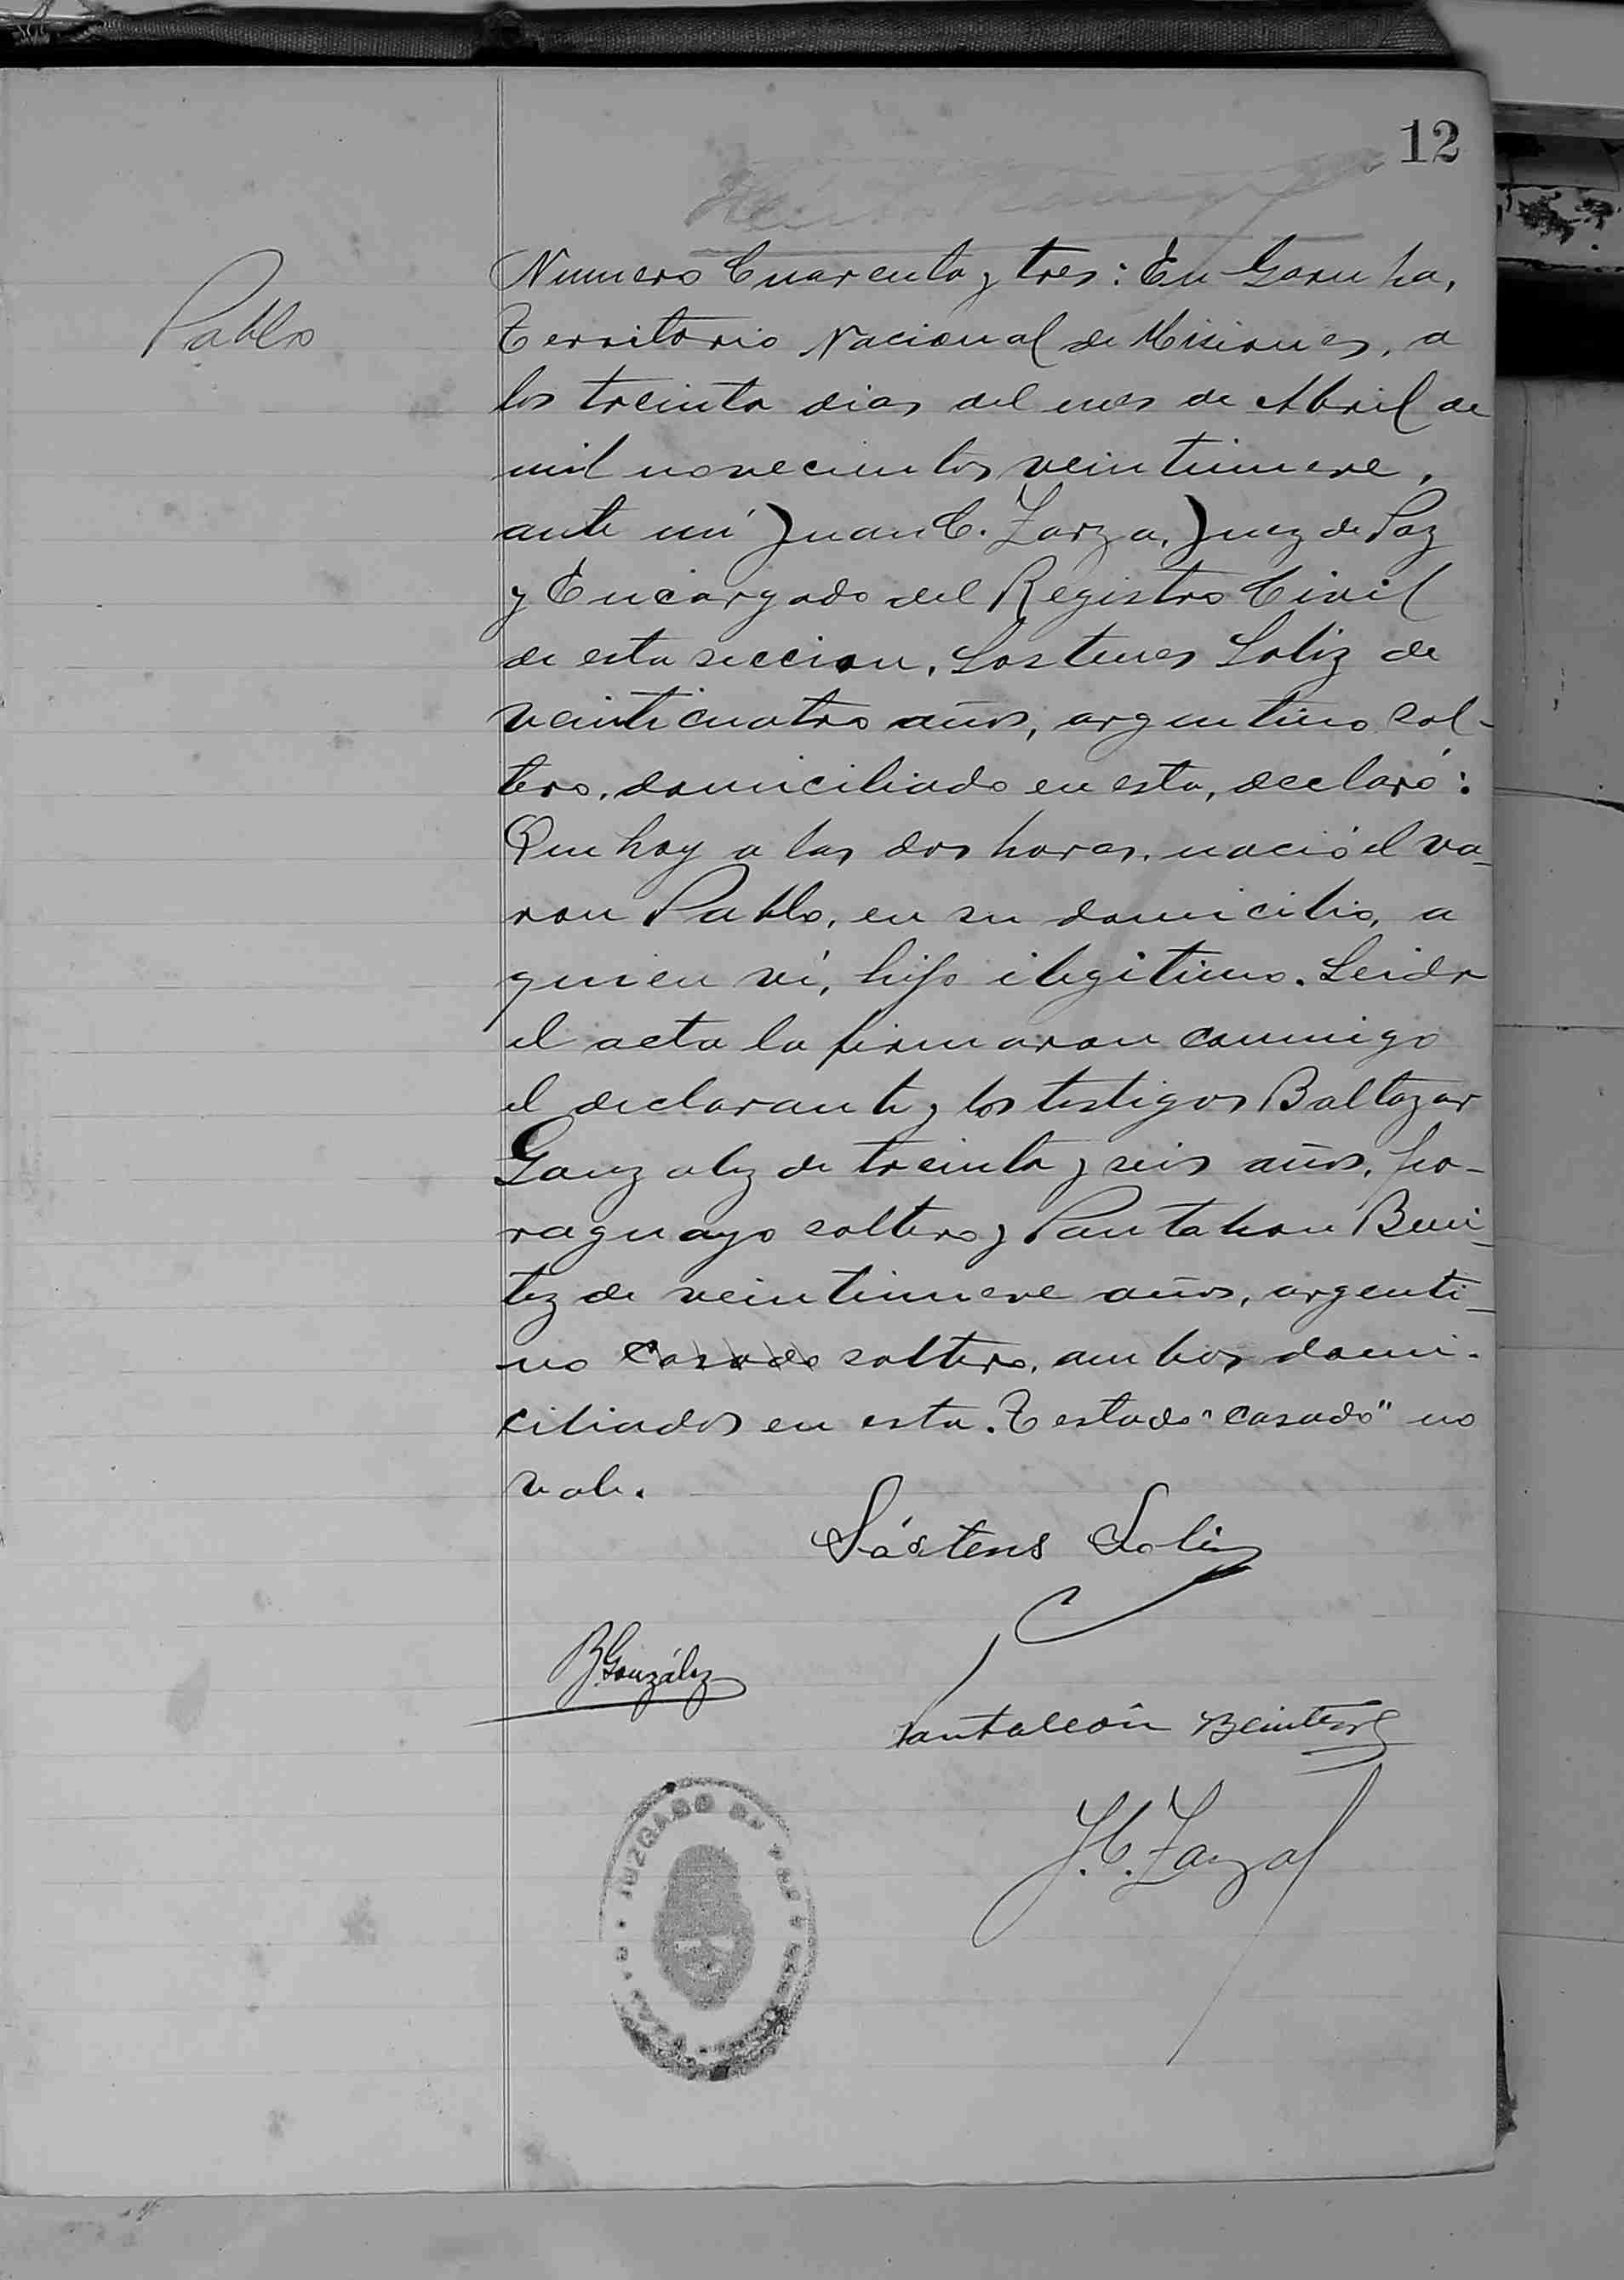 12
Pablo
Numero Cuarenta y tres: En Garuha,
Territorio Nacional de Misiones, a
los treinta dias del mes de Abril de
mil novecientos veintinueve,
ante mi Juan C. Zarza, Juez de Paz
y Encargado del Registro Civil
de esta seccion, Sostenes Soliz de
veinticuatro años, argentino sol-
tero, domiciliado en esta, declaró:
Que hoy a las dos horas, nació el va-
ron Pablo, en su domicilio, a
quien ví, hijo ilegitimo. Leida
el acta la firmaron conmigo
el declarante y los testigos Baltazar
Gonzalez de treinta y seis años, pa-
raguayo soltero y Pantaleon Beni-
tez de veintinueve años, argenti-
no casado soltero, ambos domi-
ciliados en esta. Testado "casado" no
vale.
Sóstens Soliz
B González
Pantaleón Beintes
J.C. Zarza
JUZGADO DE PAZ